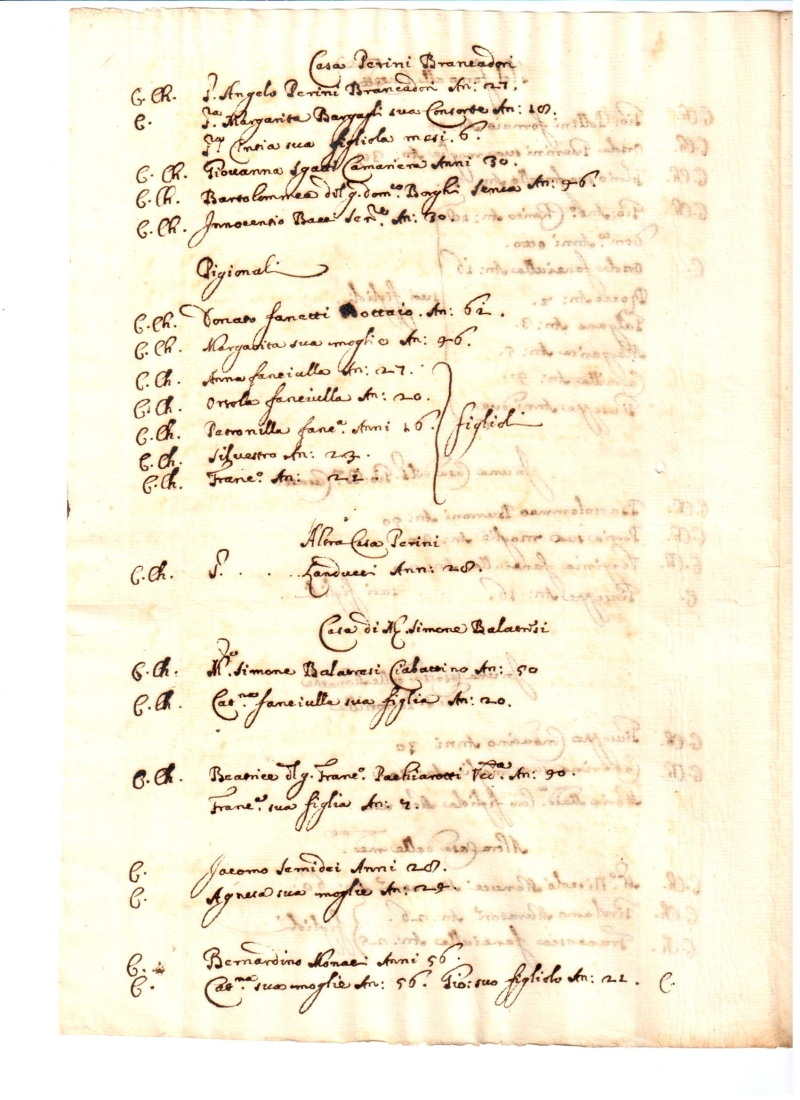 Casa Perini Brancadori
C. Ch. S. Angelo Perini Brancadori An: 27.
C. S.ra Margarita Bargagli sua Consorte An: 18.
S.ra Cintia sua figliola mesi 6.
C. Ch. Giovanna Sgatti Camariera Anni 30.
C. Ch. Bartolommea del q. Dom.co Borghi Serva An: 46.
C. Ch. Innocentio Bacci Ser.re An: 30.
Pigionali
C. Ch. Donato fanetti Bottaio. An: 62.
C. Ch. Margarita sua moglie An: 46.
C. Ch. Anna fanciulla An: 27.
C. Ch. Orsola fanciulla An: 20.
C. Ch. Petronilla fanc.a Anni 16. figlioli
C. Ch. Silvestro An: 23.
C. Ch. Franc.o An: 21.
Altra Casa Perini
C. Ch. S. . . . Landucci Ann: 28.
Casa di M.º Simone Balatresi
C. Ch. M.ro Simone Balatresi Ciabattino An: 50
C. Ch. Cat.na fanciulla sua figlia An: 20.
C. Ch. Beatrice del q. Franc.o Pachiarotti Ved.a An: 40.
Franc.a sua figlia An: 2.
C. Jacomo Semidei Anni 28.
C. Agnesa sua moglie An: 24.
C. Bernardino Monaci Anni 56.
C. Cat.na sua moglie An: 56. Gio: suo figliolo An: 22. C.